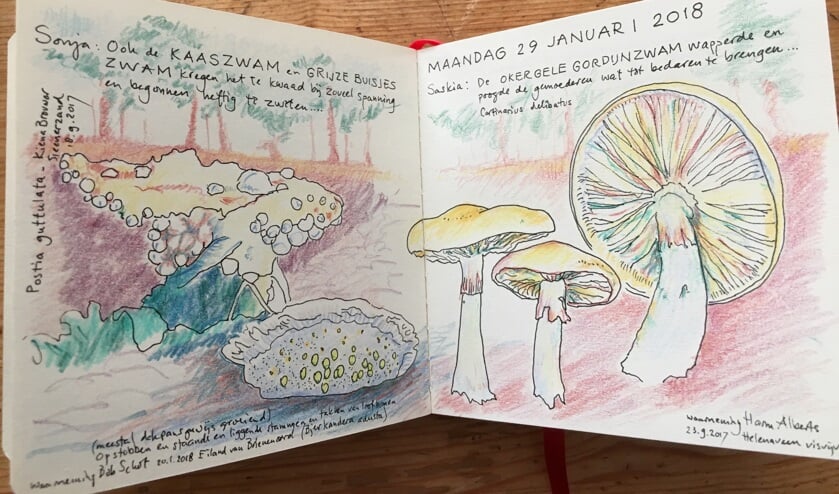 Sonja: Ook de KAASZWAM en GRIJZE BUISJES
ZWAM kregen het te kwaad bij zoveel spanning
en begonnen heftig te zweten....
Postia guttulata - Kiena Brouwer
9.2017
(meestal dakpansgewijs groeiend)
Op stobben en staande en liggende stammen en takken van loofbomen
waarneming Bob Schot 20.1.2018 Eiland van Brienenoord (Bjerkandera adusta)
MAANDAG 29 JANUARI 2018
Saskia: De OKERGELE GORDIJNZWAM wapperde en
poogde de gemoederen wat tot bedaren te brengen...
Cortinarius delibutus
waarneming Harm Alberts
23.9.2017 Helenaveen